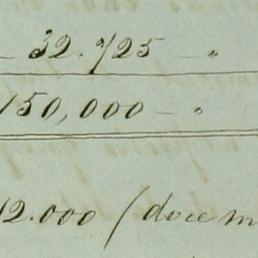 - 32.725 - "
150,000 - "
12.000 (doce m